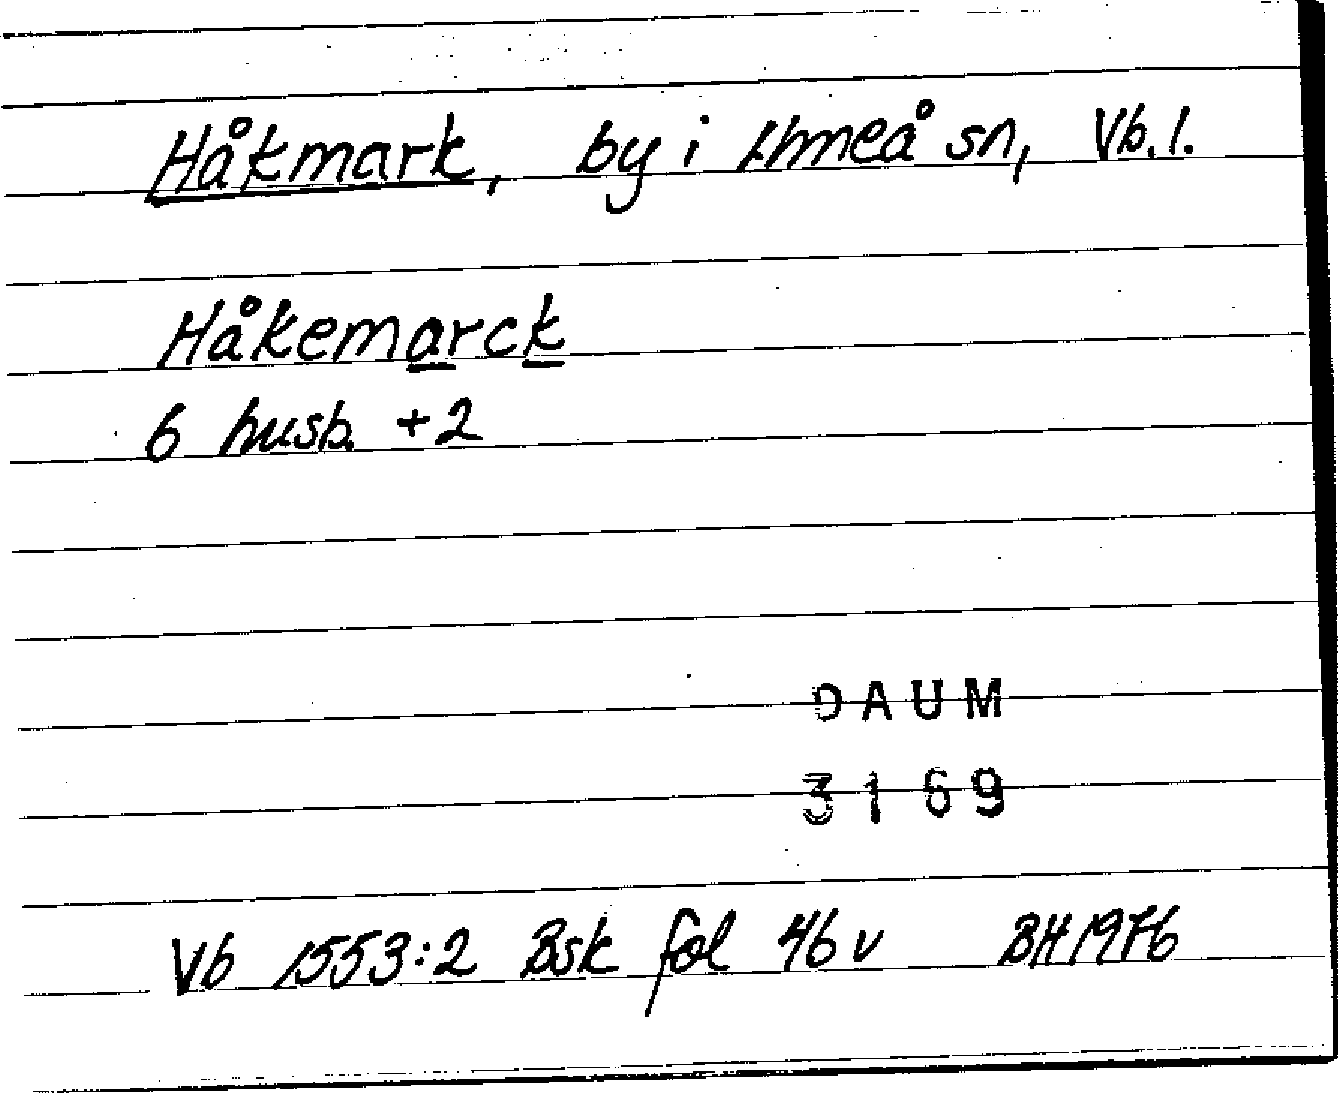 Håkmark, by i Umeå sn, Vb.l.
Håkemarck
6 husb. +2
DAUM
3169
Vb 1553:2 Bsk fol 46 v BH 1976